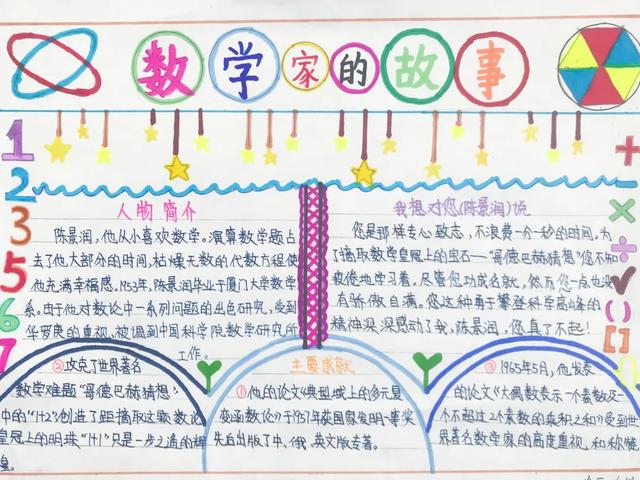 数学家的故事
1
2
3
5
6
7
+
-
×
÷
√
( )
[ ]
人物简介
陈景润,他从小喜欢数学。演算数学题占
去了他大部分的时间,枯燥无数的代数方程使
他充满幸福感。1953年,陈景润毕业于厦门大学数学
系。由于他对数论中一系列问题的出色研究,受到
华罗庚的重视,被调到中国科学院数学研究所
工作。
我想对您(陈景润)说
您是那样专心致志,不浪费一分一秒的时间。为
了摘取数学皇冠上的宝石——“哥德巴赫猜想”您不知
疲倦地学习着。尽管您功成名就,然而您一点也没
有骄傲自满。您这种勇于攀登科学高峰的
精神深深感动了我,陈景润,您真了不起!
②攻克了世界著名
数学难题“哥德巴赫猜想”
中的“1+2”,创造了距摘取这颗数论
皇冠上的明珠“1+1”只是一步之遥的辉
煌。
主要成就
①他的论文《典型域上的多元复
变函数论》于1957年获国家发明一等奖
先后出版了中、俄、英文版专著。
③1965年5月,他发表
的论文《大偶数表示一个素数及一
个不超过2个素数的乘积之和》受到世
界著名数学家的高度重视和称赞